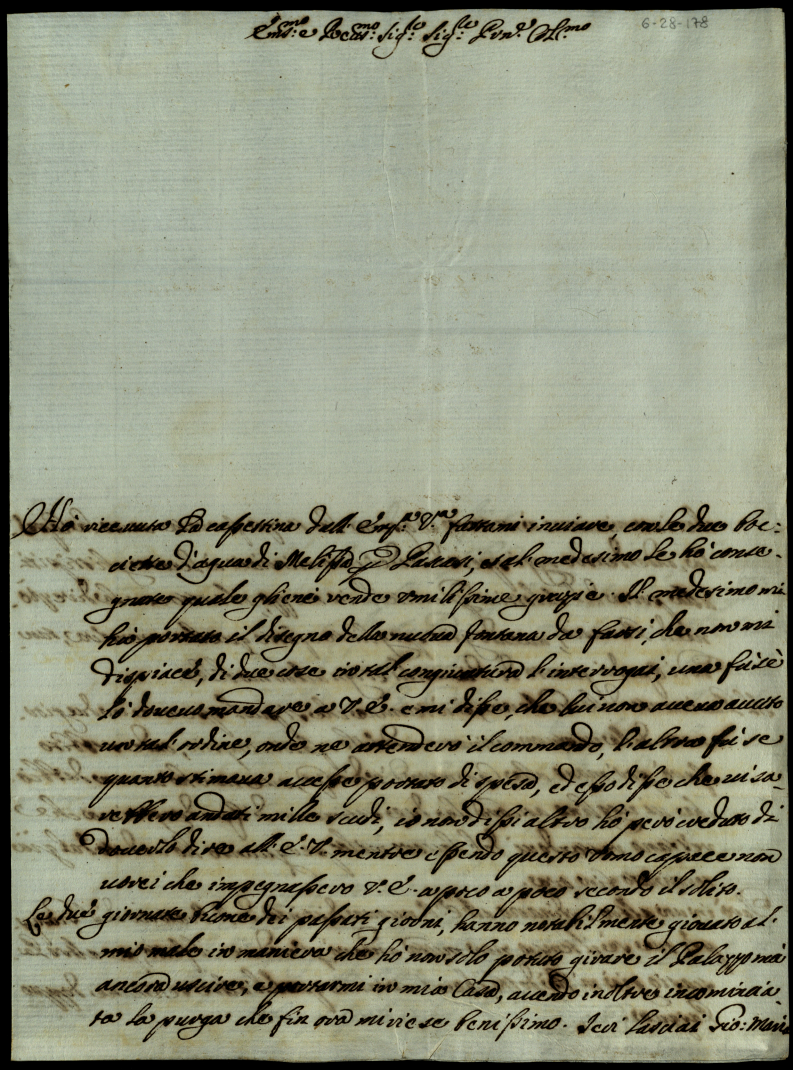 6-28-178
Em.mo e Rev.mo Sig.re Sig.re Pron.e Col.mo
Hò riceuuta la cassettina dall' Em.a V.ra fattami inuiare con le due boc-
ciette d'aqua di Melissa Pascoli, et al medesimo le hò conse-
gnate quale gliene rende umilissime grazie. Il medesimo mi
hà portato il disegno della nuoua fontana da farsi, che non mi
dispiace, di due cose in tal congiuntura l'interrogai, una fù sè
lò doueuo mandare a V.E. e mi disse, che lui non aueua auuto
un tal' ordine, onde ne attenderò il commando, l'altra fù se
quanto stimaua auesse portato di spesa, ed esso disse che ui sa-
rebbero andati mille scudi, io non dissi altro hò però creduto di
douerlo dire all' E.V. mentre essendo questo Uomo capace non
uorei che impegnassero V.E. a poco a poco secondo il solito.
Le due giornate buone dei passati giorni, hanno notabilmente giouato al
mio male in maniera che hò non solo potuto girare il Palazzo mà
ancora uscire, e portarmi in mia Casa, auendo inoltre incomincia-
ta la purga che fin ora mi riesce benissimo. Ieri lasciai Gio: Maria